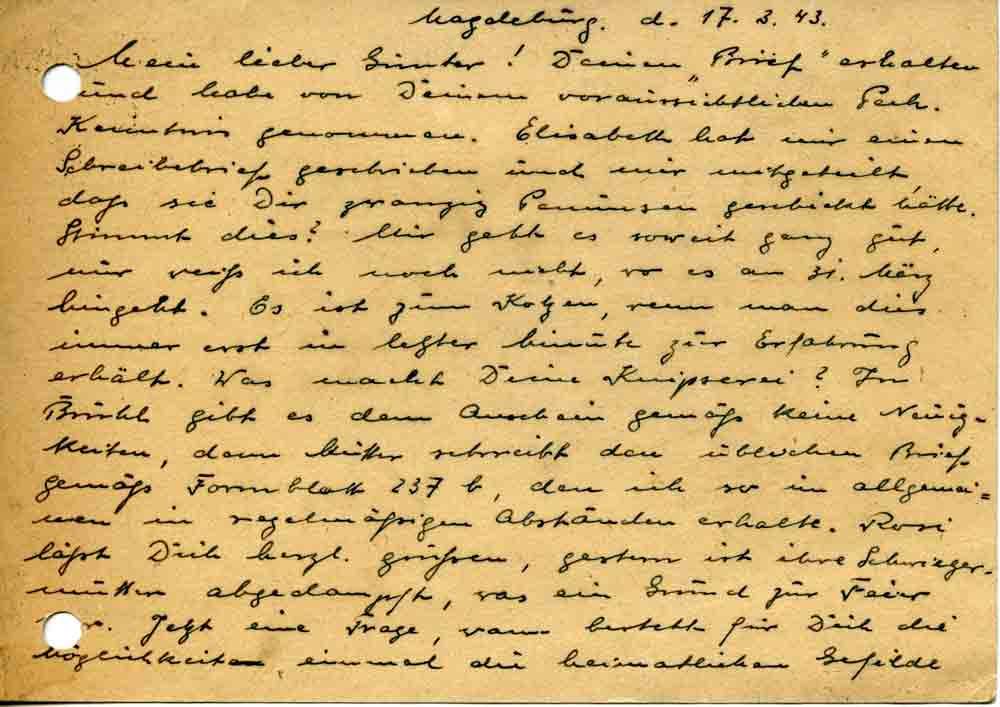 Magdeburg. d. 17. 3. 43.
Mein lieber Günter! Deinen "Brief" erhalten
und habe von Deinem voraussichtlichen Pech.
Kenntnis genommen. Elisabeth hat mir einen
Schreibebrief geschrieben und mir mitgeteilt
daß sie Dir zwanzig Penunsen geschickt hätte.
Stimmt dies? Mir geht es soweit ganz gut,
nur weiß ich noch nicht, wo es am 31. März
hingeht. Es ist zum Kotzen, wenn man dies
immer erst in letzter Minute zur Erfahrung
erhält. Was macht Deine Knipserei? In
Brühl gibt es dem Anschein gemäß keine Neuig-
keiten, denn Mutter schreibt den üblichen Brief
gemäß Formblatt 237 b, den ich so im allgemei=
nen in regelmäßigen Abständen erhalte. Rosi
läßt Dich herzl. grüßen, gestern ist ihre Schwieger-
mutter abgedampft, was ein Grund zur Feier
war. Jetzt eine Frage, wann besteht für Dich die
Möglichkeiten einmal die heimatlichen Gefilde